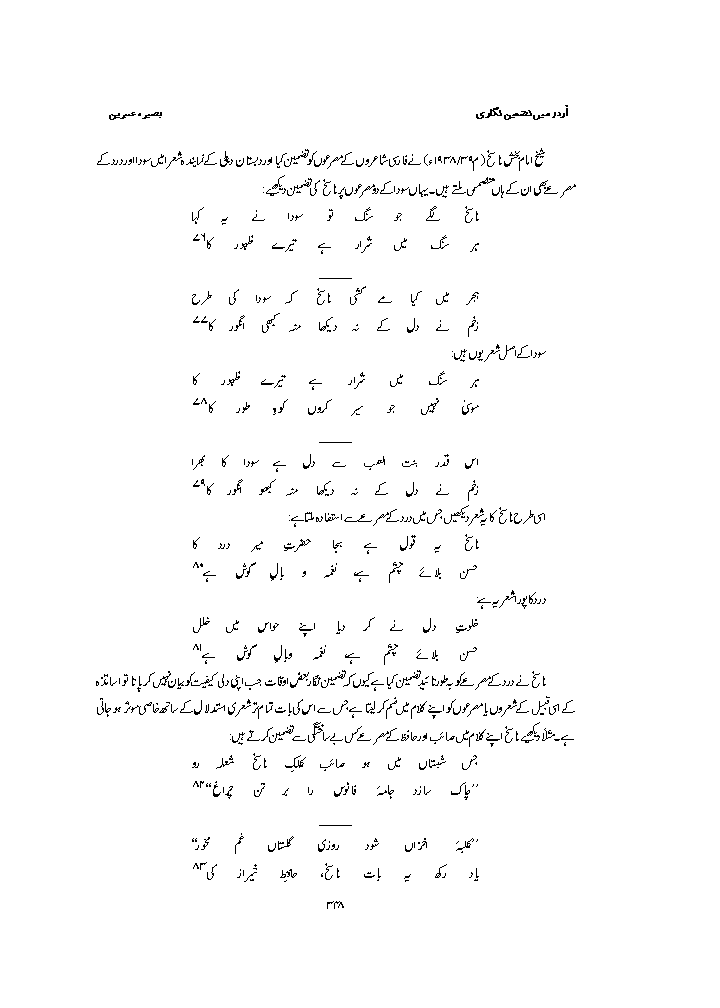 اُردو میں تضمین نگاری
بصیرہ عنبرین
شیخ امام بخش ناسخ (م ۱۹۳۸/۳۹ء) نے فارسی شاعروں کے مصرعوں کو تضمین کیا اور دبستانِ دہلی کے نمایندہ شعرا میں سودا اور درد کے
مصرعے بھی ان کے ہاں متضمن ملتے ہیں۔ یہاں سودا کے دو مصرعوں پر ناسخ کی تضمین دیکھیے:
ناسخ لگے جو سنگ تو سودا نے یہ کہا
ہر سنگ میں شرار ہے تیرے ظہور کا۷۶
ہجر میں کیا مے کشی ناسخ کہ سودا کی طرح
زخم نے دل کے نہ دیکھا منہ کبھی انگور کا۷۷
سودا کے اصل شعر یوں ہیں:
ہر سنگ میں شرار ہے تیرے ظہور کا
موسیٰ نہیں جو سیر کروں کوہِ طور کا۷۸
اس قدر بنت العنب سے دل ہے سودا کا بھرا
زخم نے دل کے نہ دیکھا منہ کبھو انگور کا۷۹
اسی طرح ناسخ کا یہ شعر دیکھیں جس میں درد کے مصرعے سے استفادہ ملتا ہے:
ناسخ یہ قول ہے بجا حضرتِ میر درد کا
حسن بلائے چشم ہے نغمہ و بالِ گوش ہے۸۰
درد کا پورا شعر یہ ہے:
خلوتِ دل نے کر دیا اپنے حواس میں خلل
حسن بلائے چشم ہے نغمہ وبالِ گوش ہے۸۱
ناسخ نے درد کے مصرعے کو بہ طور تائید تضمین کیا ہے کیوں کہ تضمین نگار بعض اوقات جب اپنی دلی کیفیت کو بیان نہیں کر پاتا تو اساتذہ
کے اسی قبیل کے شعروں یا مصرعوں کو اپنے کلام میں ضم کر لیتا ہے جس سے اس کی بات تمام تر شعری استدلال کے ساتھ خاصی موثر ہو جاتی
ہے۔ مثلاً دیکھیے ناسخ اپنے کلام میں صائب اور حافظ کے مصرعے کس بے ساختگی سے تضمین کرتے ہیں:
جس شبستاں میں ہو صائب کلکِ ناسخ شعلہ رو
’’چاک سازد جامۂ فانوس را بر تن چراغ‘‘۸۲
’’کلبۂ احزاں شود روزی گلستاں غم مخور‘‘
یاد رکھ یہ بات ناسخ، حافظِ شیراز کی۸۳
۳۴۸